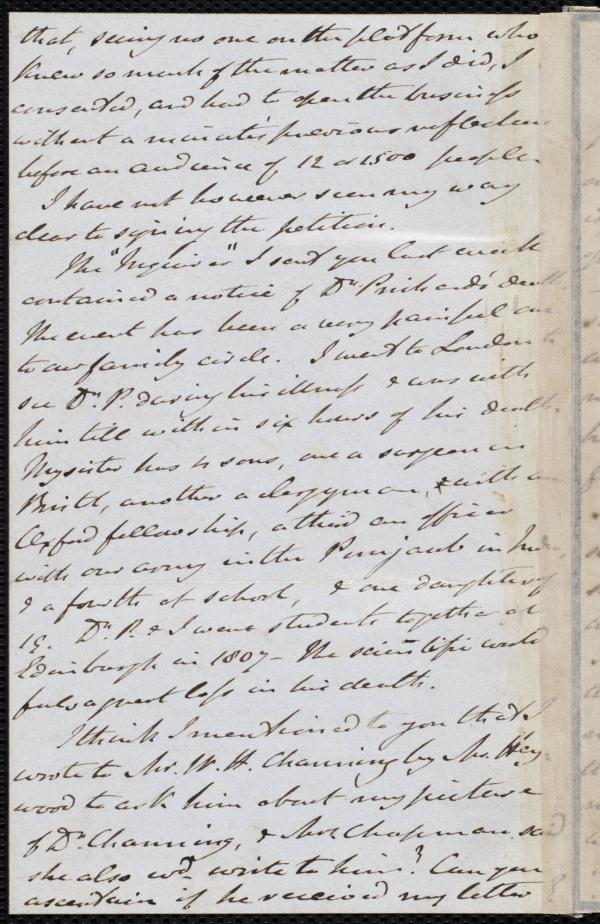 that, seeing no one on the platform who
knew so much of the matter as I did, I
consented, and had to open the business
without a minute's previous reflection
before an audience of 12 or 1500 people.
I have not however seen my way
clear to signing the petition.
The "Inquirer" I sent you last week
contained a notice of Dr. Prichard's death
The event has been a very painful one
to our family circle. I went to London to
see Dr. P. during his illness & was with
him till within six hours of his death.
My sister has 4 sons, one a surgeon in
Bristl, another a clergyman, & with an
Oxford fellowship, a third an officer
with our army in the Punjaub in India,
& a fourth at school, & one daughter of
19. Dr. P. & I were students together at
Edinburgh in 1807 - The scientific world
feels a great loss in his death.
I think I mentioned to you that I
wrote to Mr. W. H. Channing by Mr. Hey-
wood to ask him about my picture
of Dr. Channing, & Mrs. Chapman said
she also wd. write to him? Can you
ascertain if he received my letter?